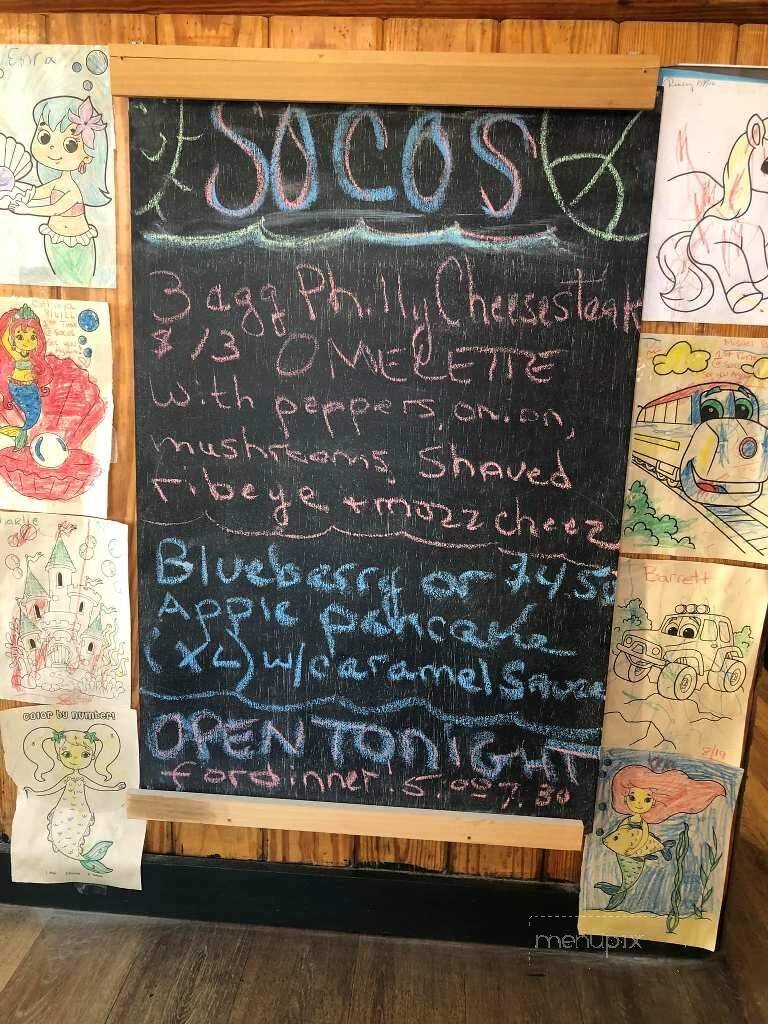 SOCOS
3 agg Philly Cheesesteak
$13 OMELETTE
with peppers, onion,
mushrooms, Shaved
ribeye + mozz cheez
Blueberry or $4.50
Apple pancake
(XL) w/caramel Sauce
OPEN TONIGHT
for dinner! 5:00 7:30
Charlie
color by number!
Barrett
8/19
menupix